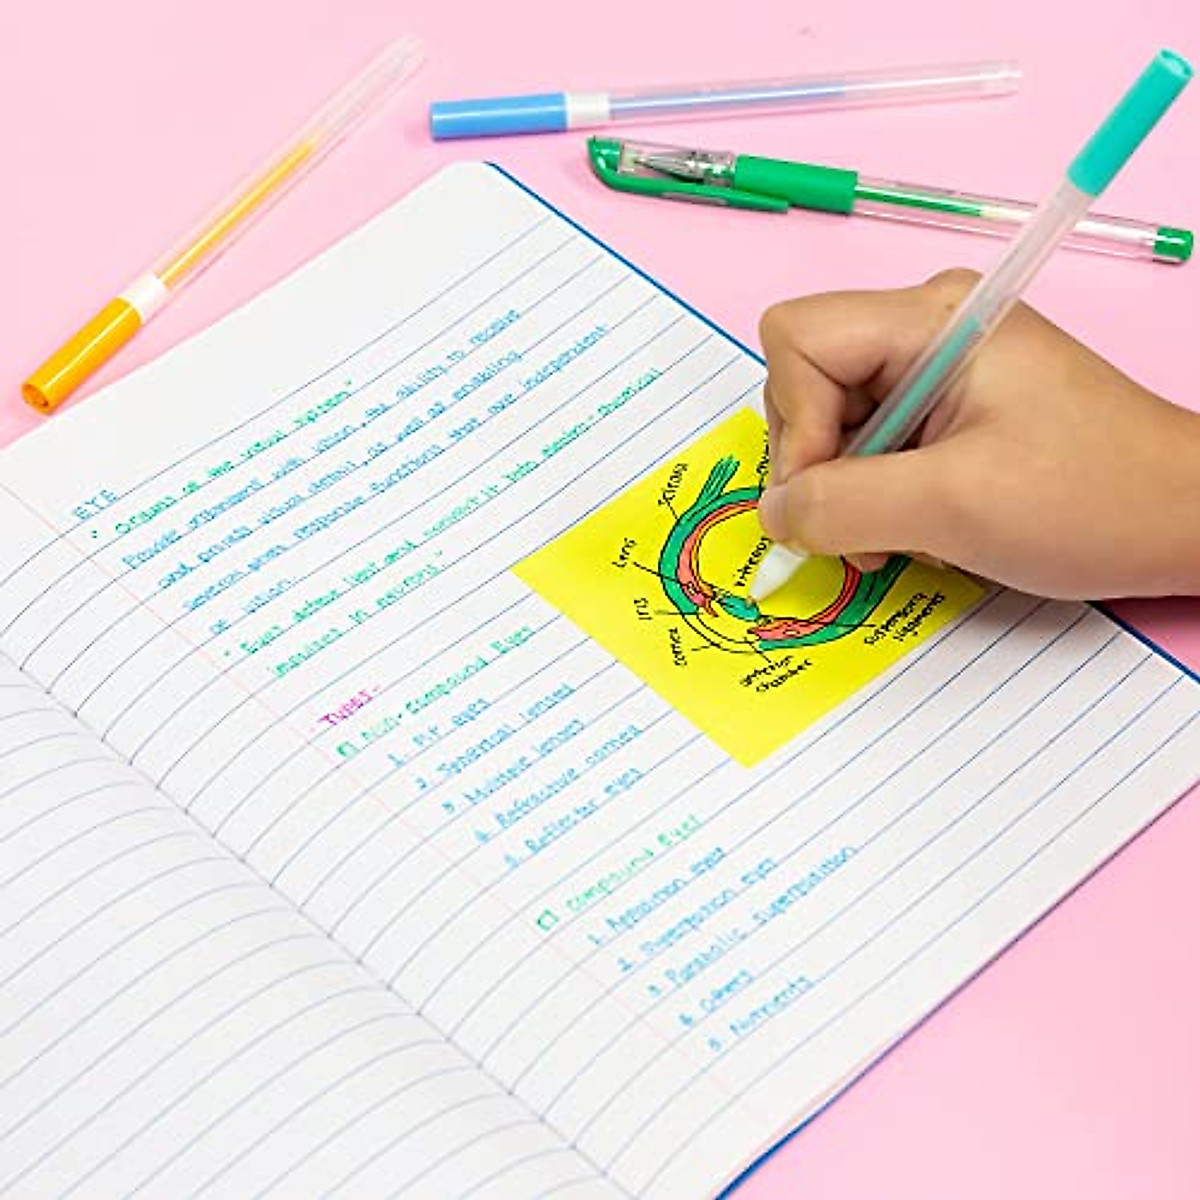 EYE
• Organs of the visual system"
Provide organism with vision, the ability to receive
and process visual detail, as well as enabling
several photo response functions that are independent
of vision.
" Eyes detect light and convert it into electro-chemical
impulses in neurons."
Types-
Non-compound Eyes
1. Pit eyes
2. Spherical lensed
3. Multiple lenses
4. Refractive cornea
5. Reflector eyes
compound Eyes
1. Apposition eyes
2. Superposition eyes
3. Parabolic superposition
4. Others
5. Nutrients
Sclera
Lens
Iris
cornea
anterior
chamber
vitreous
suspensory
ligaments